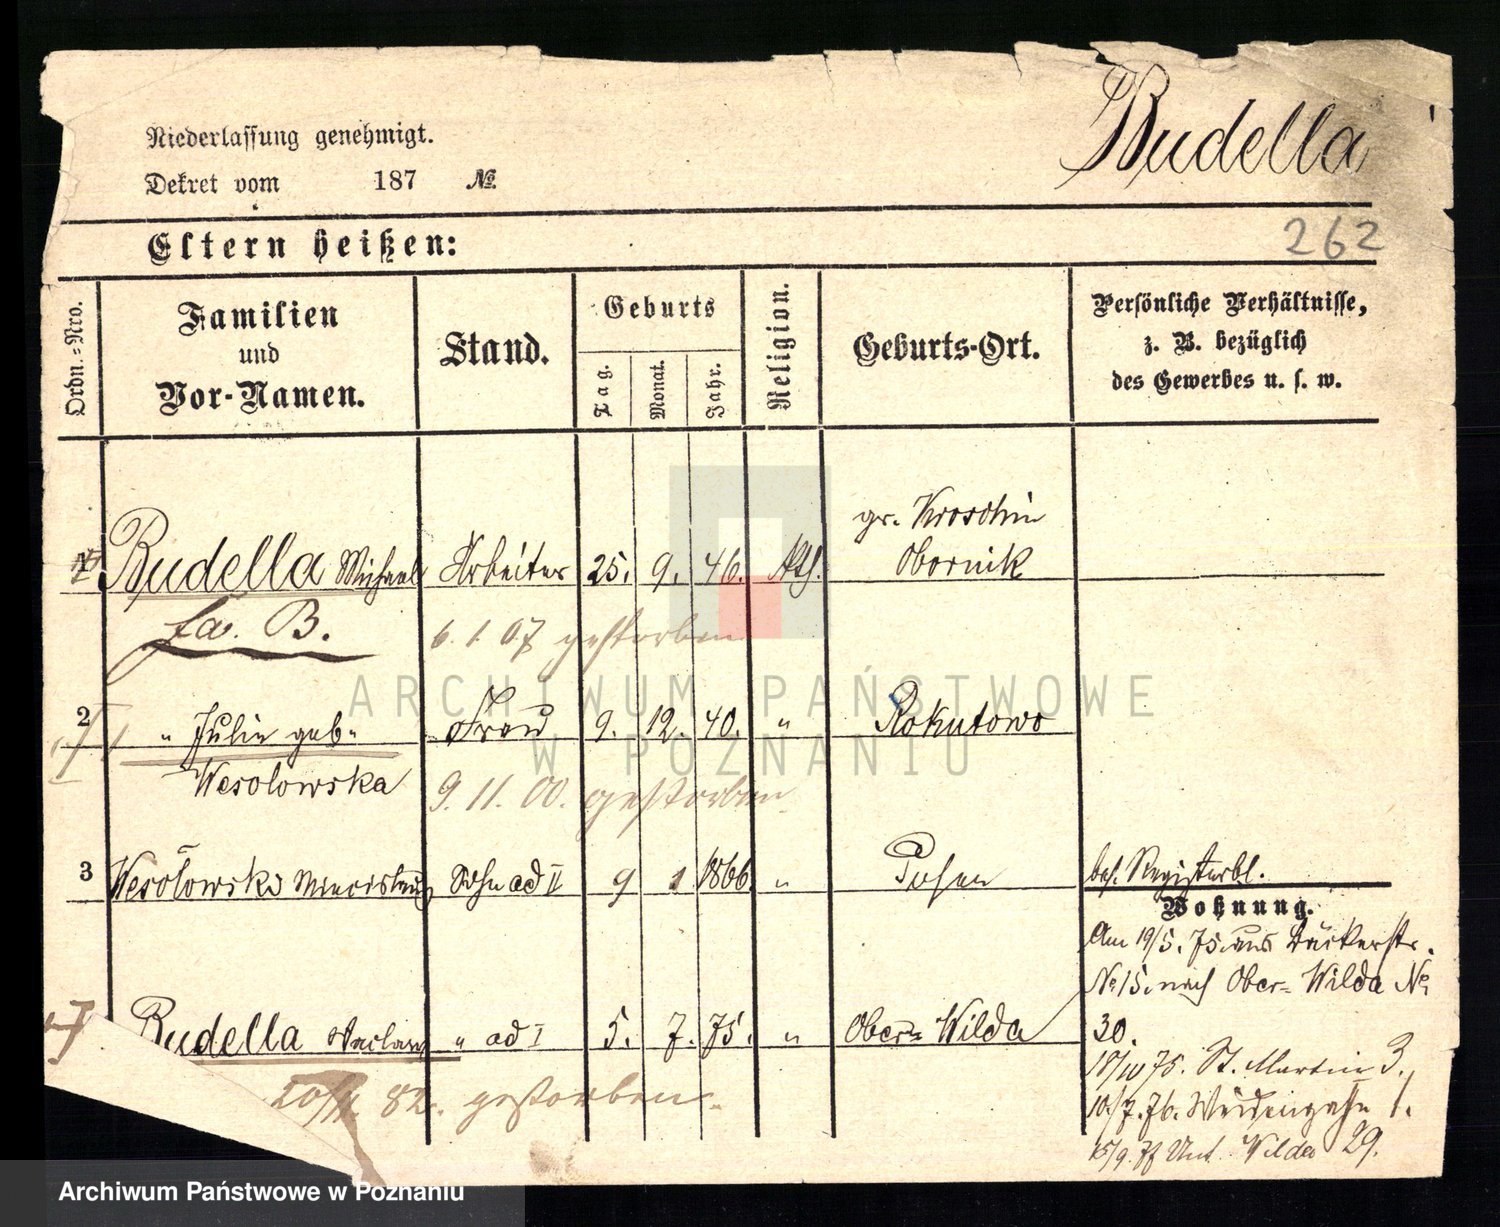 Niederlassung genehmigt.
Dekret vom 187 №
Budella
Eltern heißen:
262
Ordn.-Nro.
Familien
und
Vor-Namen.
Stand.
Geburts
Tag.
Monat.
Jahr.
Religion.
Geburts-Ort.
Persönliche Verhältnisse,
z. B. bezüglich
des Gewerbes u. s. w.
1 Budella Michael Arbeiter 25. 9. 46. kth. gr. Kroschin
Obornik
fa. B.
6. 1. 07 gestorben
2 " Julie geb. Frau 9. 12. 40. " Rokutowo
Wesolowska
9. 11. 00. gestorben
3 Wesolowski Sohn ad II 9 1 1866 " Posen
bes. Registerbl.
Wohnung.
Am 19/5. 75. aus Bäckerstr.
No 15. nach Ober-Wilda No
30.
Budella " ad I 5. 7. 75. " Ober-Wilda
82. gestorben
75. St. Martin 3.
10/7. 76. Weidengasse 1.
15/9. 77 Unt. Wilda 29.
ARCHIWUM PAŃSTWOWE
W POZNANIU
Archiwum Państwowe w Poznaniu